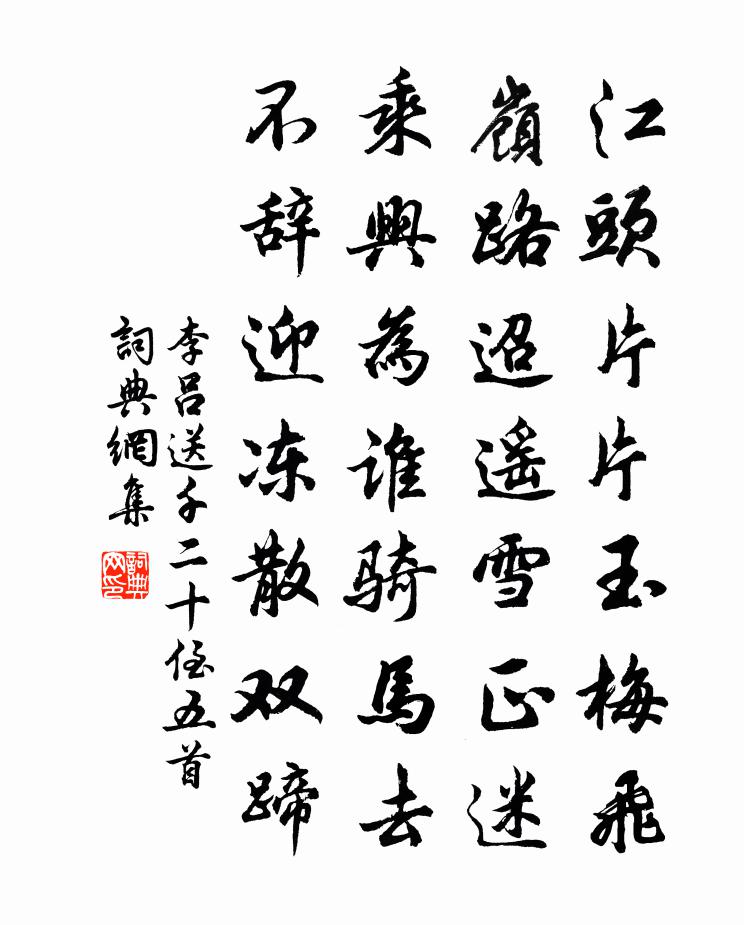 江頭片片玉梅飛
嶺路迢遥雪正迷
乘興為誰騎馬去
不辞迎冻散双蹄
李吕送千二十侄五首
詞典網集
詞典網印